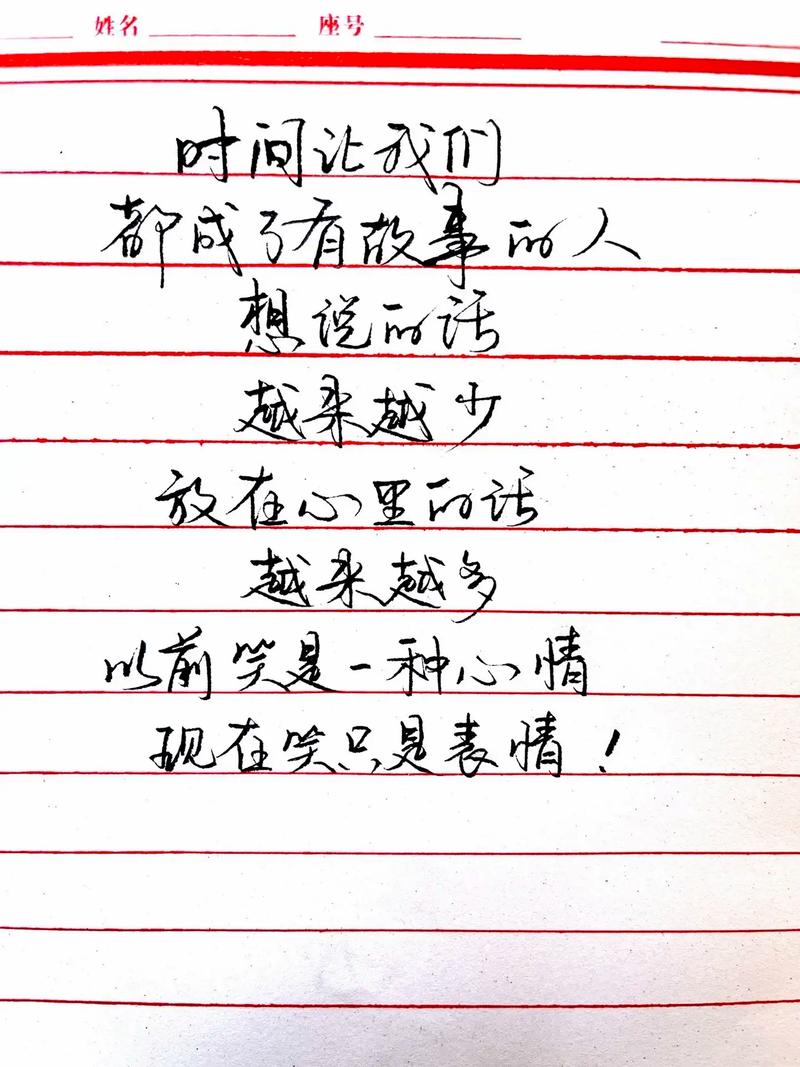 姓名 座号
时间让我们
都成了有故事的人
想说的话
越来越少
放在心里的话
越来越多
以前笑是一种心情
现在笑只是表情！